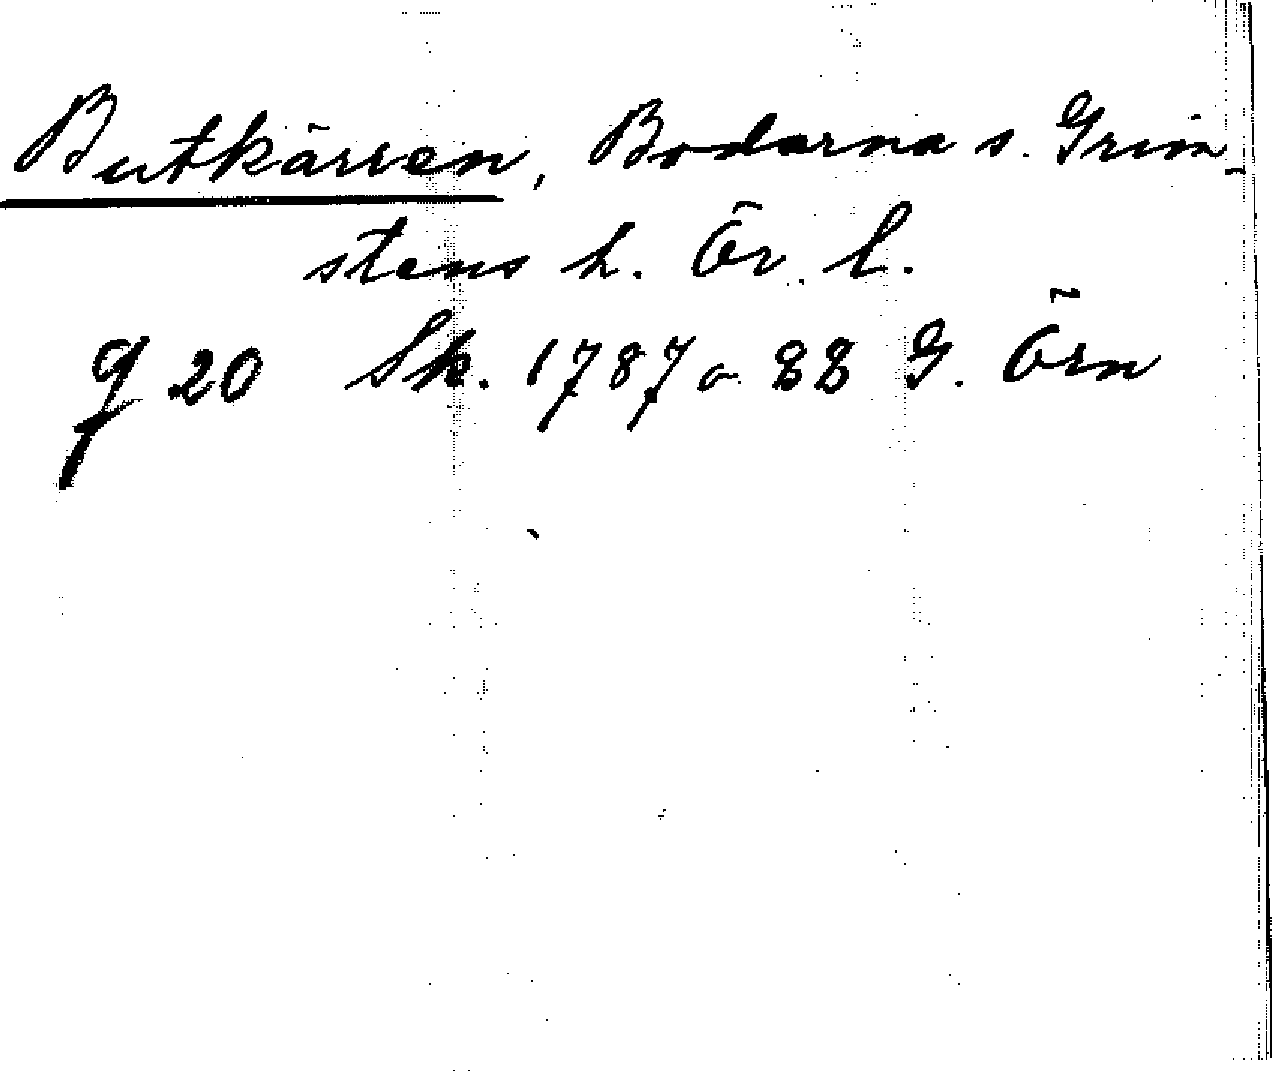 Butkärren, Bodarna s. Grim-
stens h. Ör. l.
g 20 Sk. 1787 o. 88 G. Örn